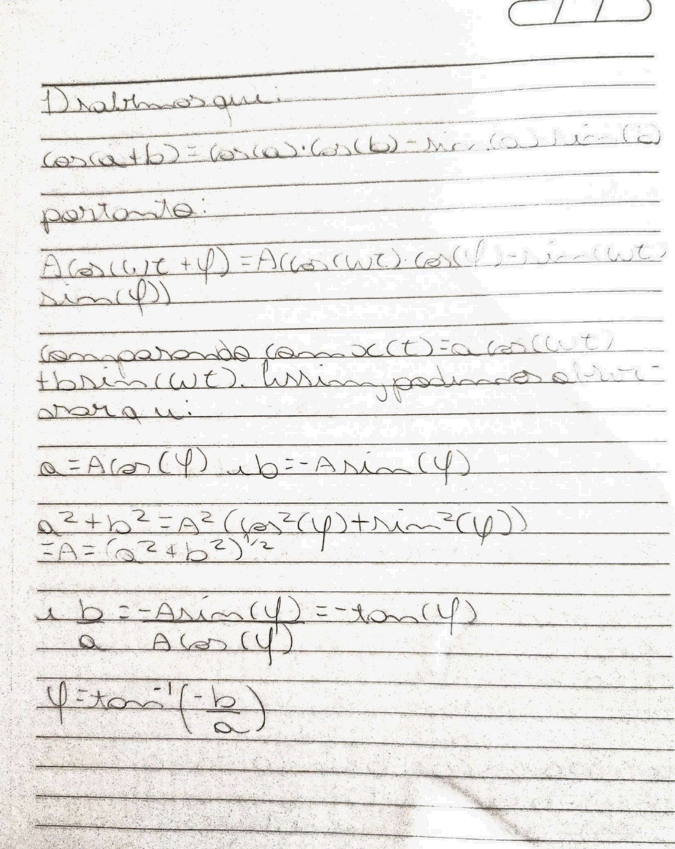 1) sabemos que:
cos(a+b) = cos(a)·cos(b) - sin(a) sin(b)
portanto:
A cos(ωt + φ) = A(cos(ωt)·cos(φ) - sin(ωt)
sin(φ))
comparando com x(t) = a cos(ωt)
+ b sin(ωt). Assim, podemos obser-
var que:
a = A cos(φ) e b = -A sin(φ)
a² + b² = A² (cos²(φ) + sin²(φ))
= A = (a² + b²)^1/2
e b/a = -A sin(φ)/A cos(φ) = -tan(φ)
φ = tan⁻¹(-b/a)